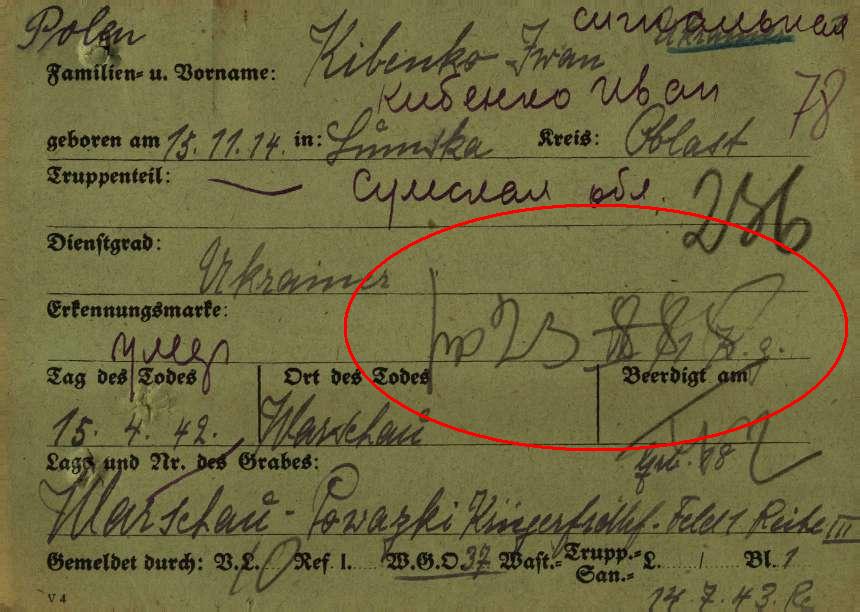 Polen
сигнальная
Familien- u. Vorname: Kibenko Iwan
Кибенко Иван
78
geboren am 15.11.14. in: Sumska Kreis: Oblast
Truppenteil: Сумская обл.
236
Dienstgrad:
Ukrainer
Erkennungsmarke:
умер
Tag des Todes Ort des Todes Beerdigt am
15. 4. 42. Warschau
Lage und Nr. des Grabes:
Warschau - Powazki Kriegerfrdhf. Feld 1 Reihe III
Gemeldet durch: V.L. Ref. l. W.G.O 37 Wast.- Trupp.- San.- L. / Bl. 1
V 4
14.7.43.